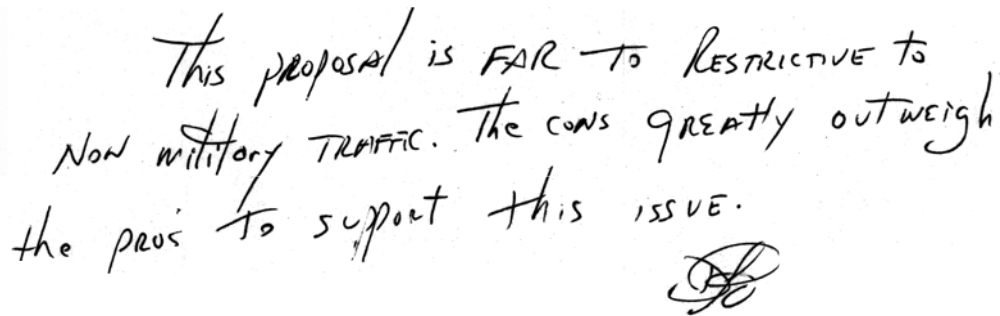 This proposal is FAR To RESTRICTIVE to
NON military TRAFFIC. The cons greatly outweigh
the pro's To support this issue.